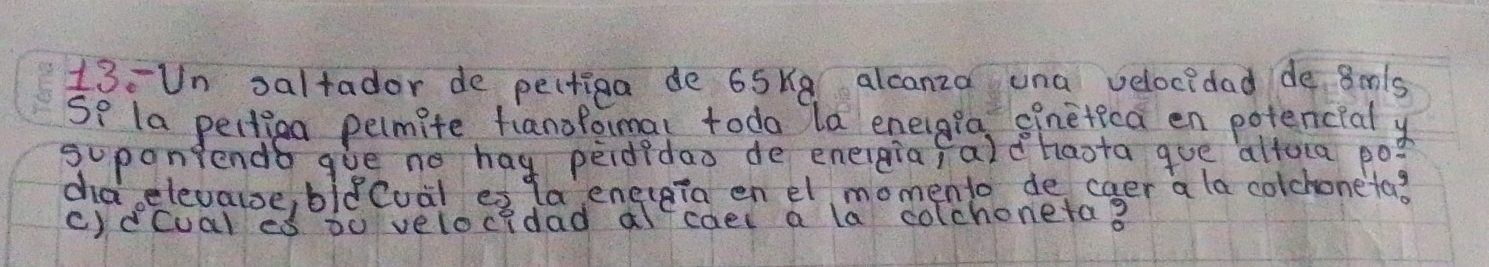 13.- Un saltador de pertiga de 65Kg alcanza una velocidad de 8m/s
Si la pertiga permite transformar toda la energia cinética en potencial y
suponiendo que no hay pérdidas de energia, a) ¿hasta que altura po-
dia elevarse, b) ¿Cuál es la energía en el momento de caer a la colchoneta?
c) ¿Cual es su velocidad al caer a la colchoneta?